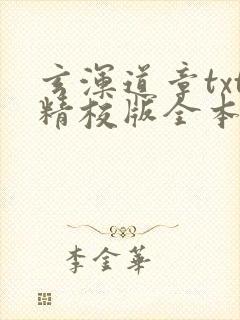 玄浑道章txt
精校版全本
李金華